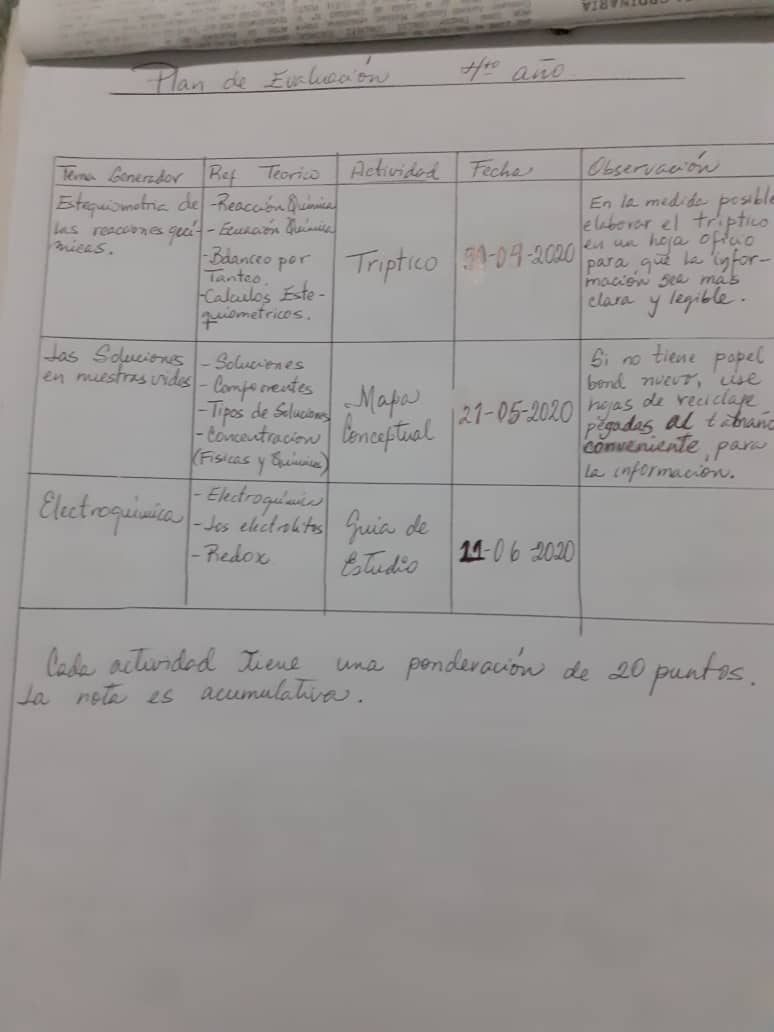 ORDINARIA
Plan de Evaluación 4to año.
Tema Generador
Ref Teorico
Actividad
Fecha
Observación
Estequiometria de
las reacciones quí-
micas.
- Reacción Química
- Ecuación Química
- Balanceo por
Tanteo.
- Calculos Este-
quiometricos.
Triptico
-2020
En la medida posible
elaborar el triptico
en un hoja oficio
para que la infor-
mación sea mas
clara y legible.
Las Soluciones
en nuestras vidas
- Soluciones
- Componentes
- Tipos de Soluciones
- Concentracion
(Fisicas y Químicas)
Mapa
Conceptual
21-05-2020
Si no tiene papel
bond nuevo, use
hojas de reciclaje
pegadas al tamaño
conveniente, para
la informacion.
Electroquímica
- Electroquímica
- Los electrolitos
- Redox
Guia de
Estudio
11-06-2020
Cada actividad tiene una ponderación de 20 puntos.
La nota es acumulativa.